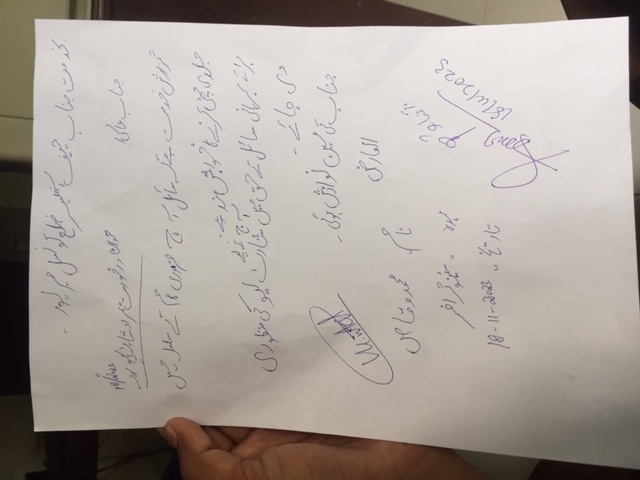 بخدمت جناب چیف آفیسر ضلع کونسل میرپور۔
عنوان درخواست بمراد شارٹ لیو مورخہ 18/11/2023
جناب عالی!
گزارش خدمت ہے کہ سائل آج ضروری کام کے سلسلہ میں
جلدی چھٹی کرنے کا خواہش مند ہے۔
برائے مہربانی سائل کے حق میں آج کے لیے شارٹ لیو کی منظوری
دی جائے۔
جناب کی عین نوازش ہوگی۔
العارض
نام:۔ محمد وقاص
عہدہ:۔ سٹینوگرافر
تاریخ:۔ 18-11-2023
18/11/2023